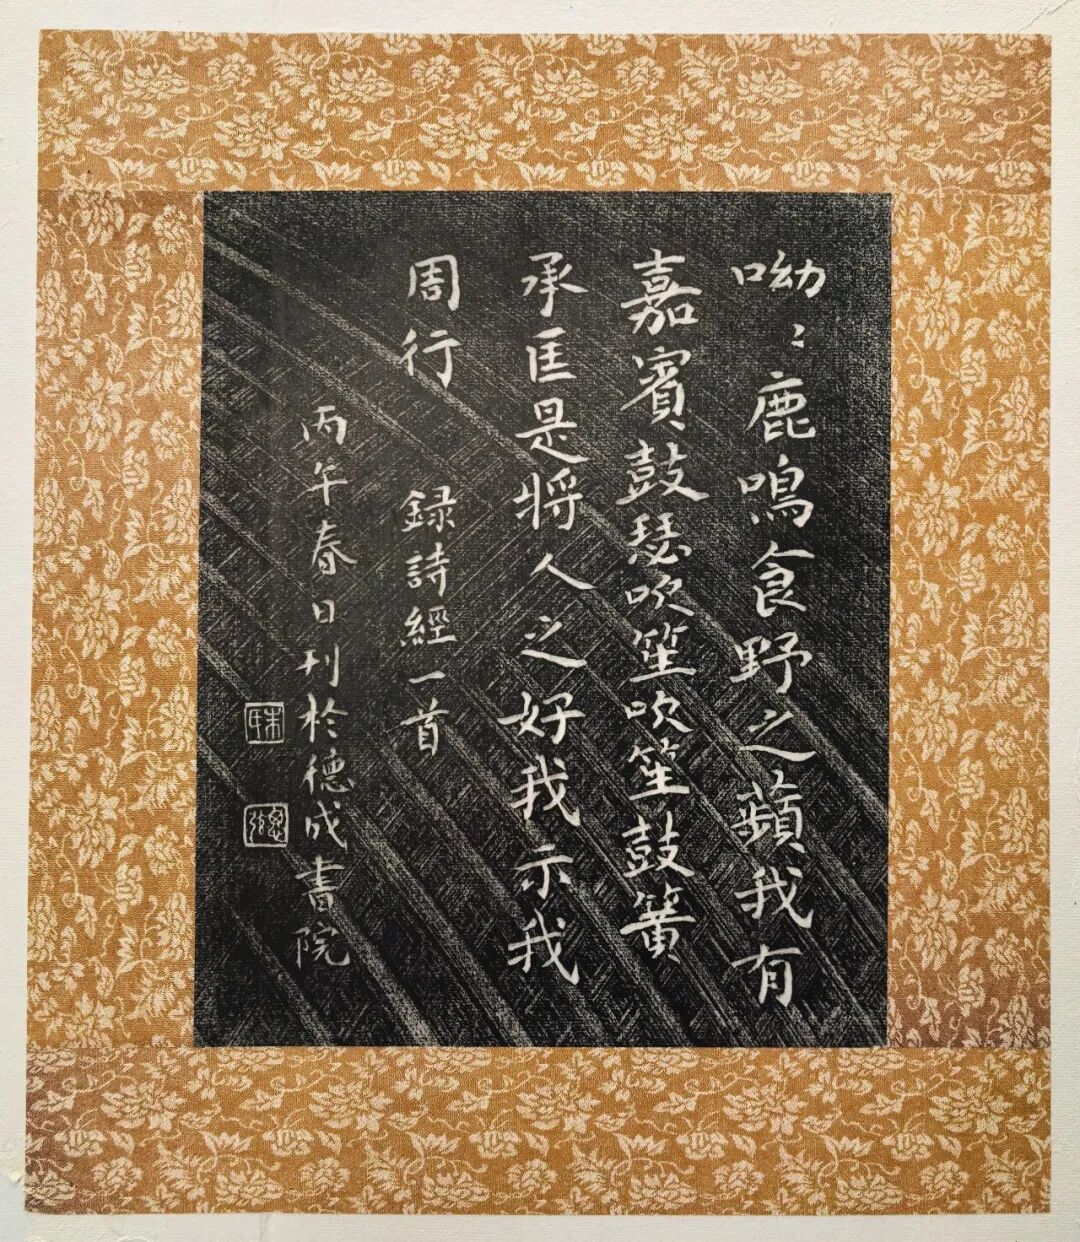 呦〻鹿鳴食野之蘋我有
嘉賓鼓瑟吹笙吹笙鼓簧
承匡是將人之好我示我
周行 録詩經一首
丙午春日刊於德成書院